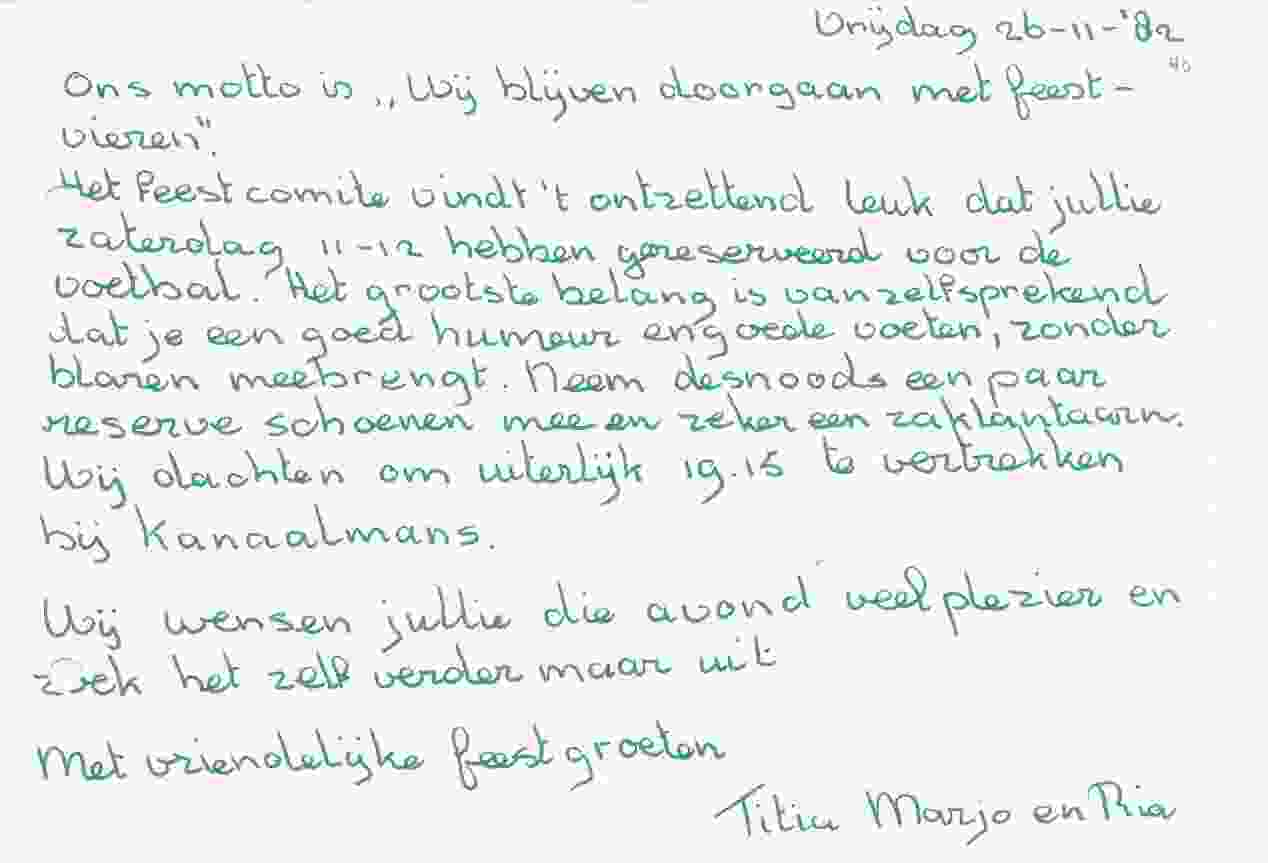 Vrijdag 26-11-'82
40
Ons motto is „Wij blijven doorgaan met feest-
vieren".
Het feestcomite vindt 't ontzettend leuk dat jullie
zaterdag 11-12 hebben gereserveerd voor de
voetbal. Het grootste belang is vanzelfsprekend
dat je een goed humeur en goede voeten, zonder
blaren meebrengt. Neem desnoods een paar
reserve schoenen mee en zeker een zaklantaarn.
Wij dachten om uiterlijk 19.15 te vertrekken
bij Kanaalmans.
Wij wensen jullie die avond veel plezier en
zoek het zelf verder maar uit
Met vriendelijke feestgroeten
Marjo en Ria